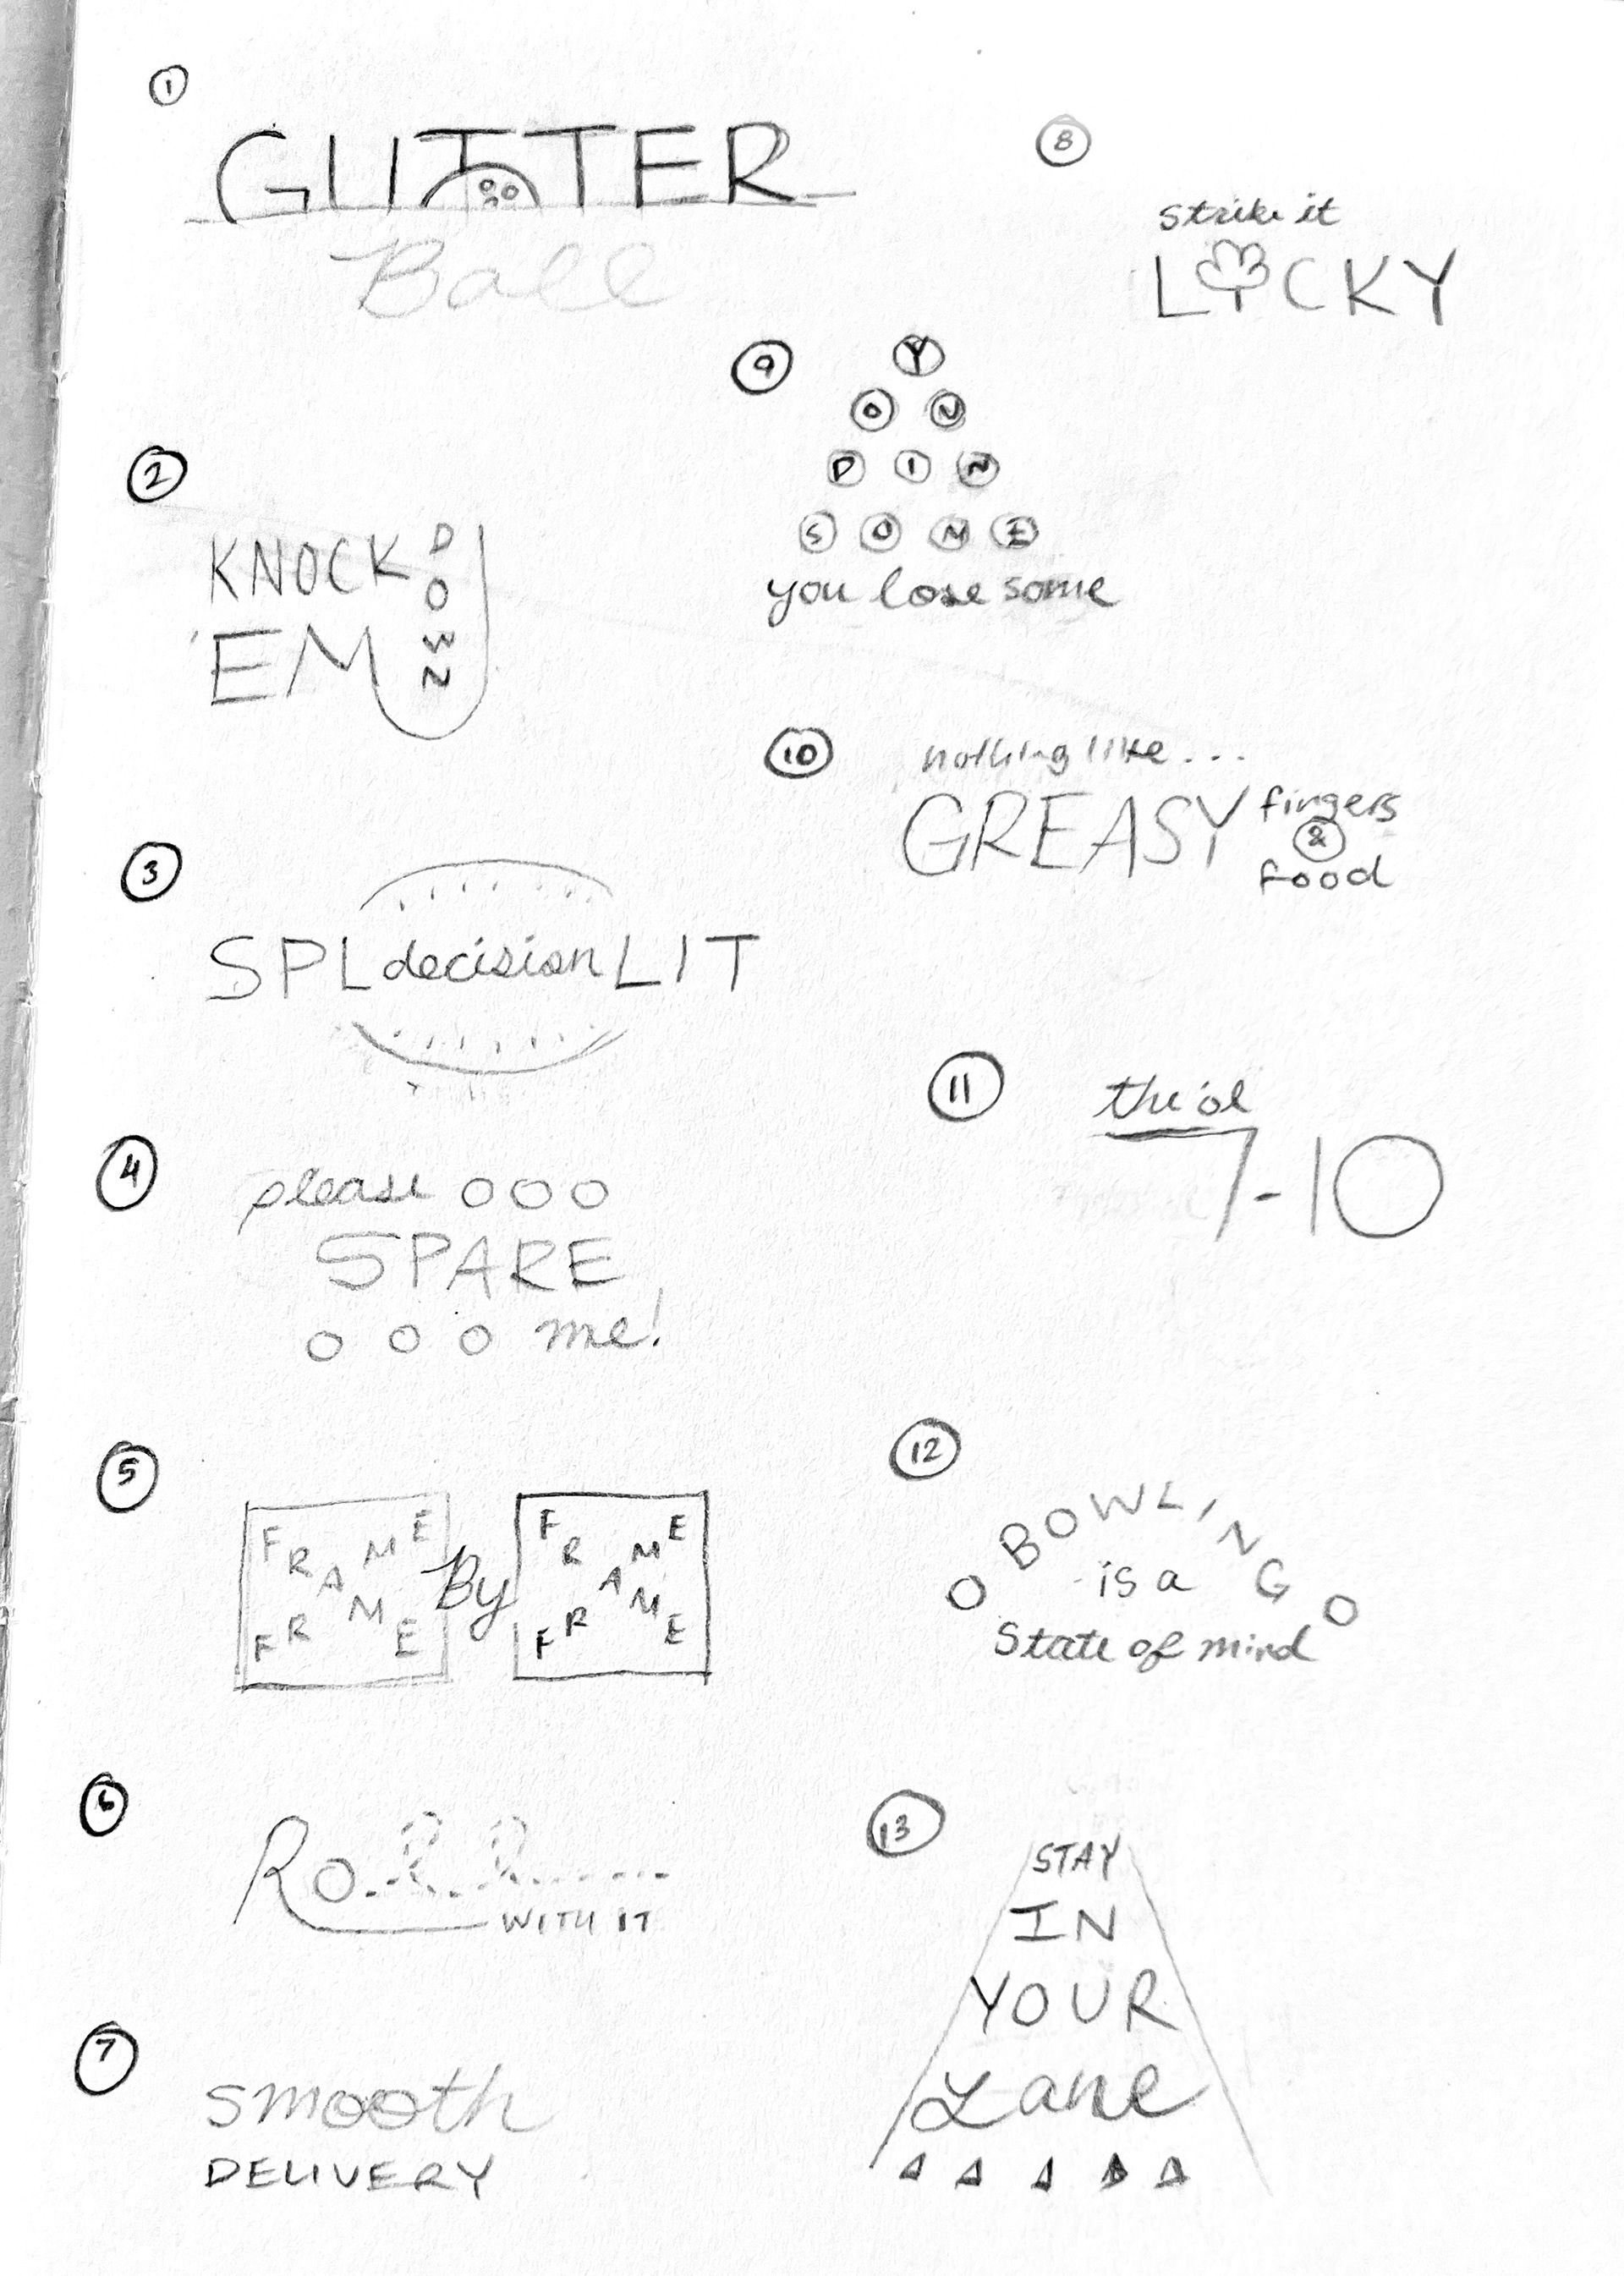 1
GUTTER
Ball
2
KNOCK DOWN
'EM
3
SPL decision LIT
4
please
SPARE
me!
5
FRAME FRAME By FRAME FRAME
6
Roll
WITH IT
7
smooth
DELIVERY
8
strike it
LUCKY
9
Y
O U
P I N
S O M E
you lose some
10
nothing like...
GREASY fingers
&
food
11
the ol
7-10
12
BOWLING
is a
State of mind
13
STAY
IN
YOUR
Lane